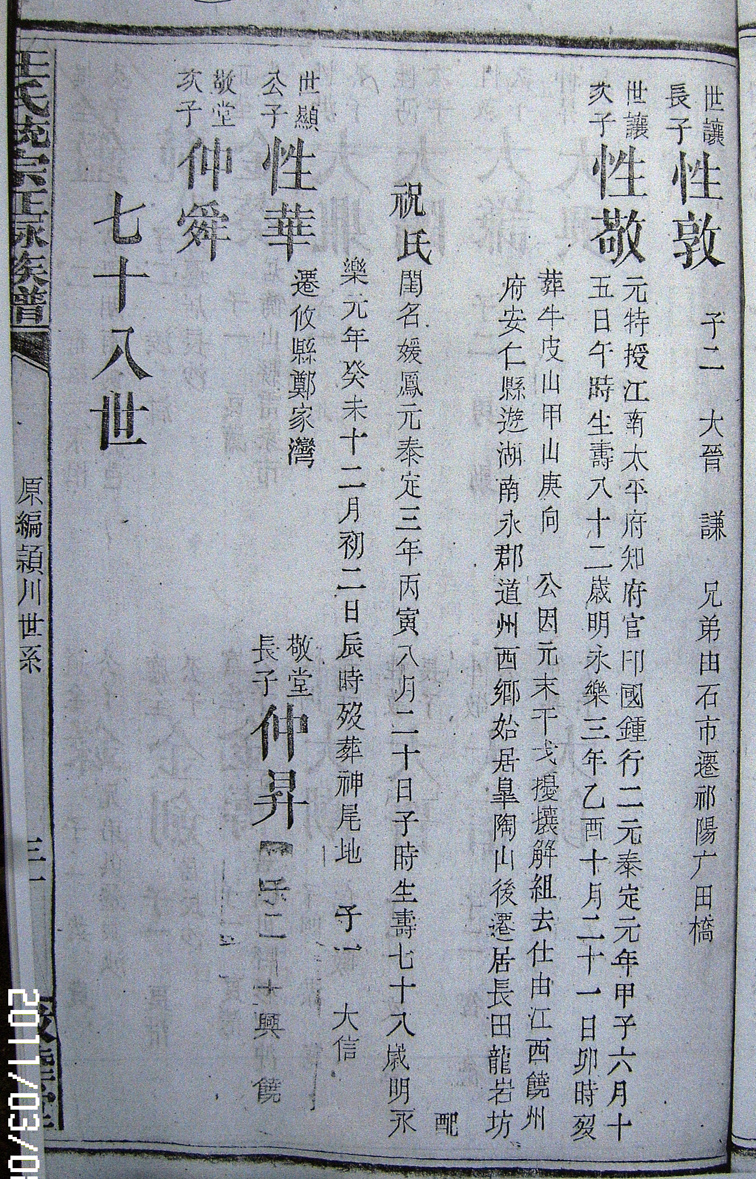 世讓
長子
性敦
子二　大晉　謙　兄弟由石市遷祁陽广田橋
世讓
次子
性敬
元特授江南太平府知府官印國鍾行二元泰定元年甲子六月十
五日午時生壽八十二歲明永樂三年乙酉十月二十一日卯時歿
葬牛皮山甲山庚向　公因元末干戈擾攘解組去仕由江西饒州
府安仁縣遊湖南永郡道州西鄉始居臯陶山後遷居長田龍岩坊
配
祝氏
閨名媛鳳元泰定三年丙寅八月二十日子時生壽七十八歲明永
樂元年癸未十二月初二日辰時歿葬神尾地　子一　大信
世顯
公子
性華
遷攸縣鄭家灣
敬堂
長子
仲昇
子二
大興　饒
敬堂
次子
仲舜
七十八世
王氏統宗正脉族譜
原編潁川世系
三一
2011/03/0